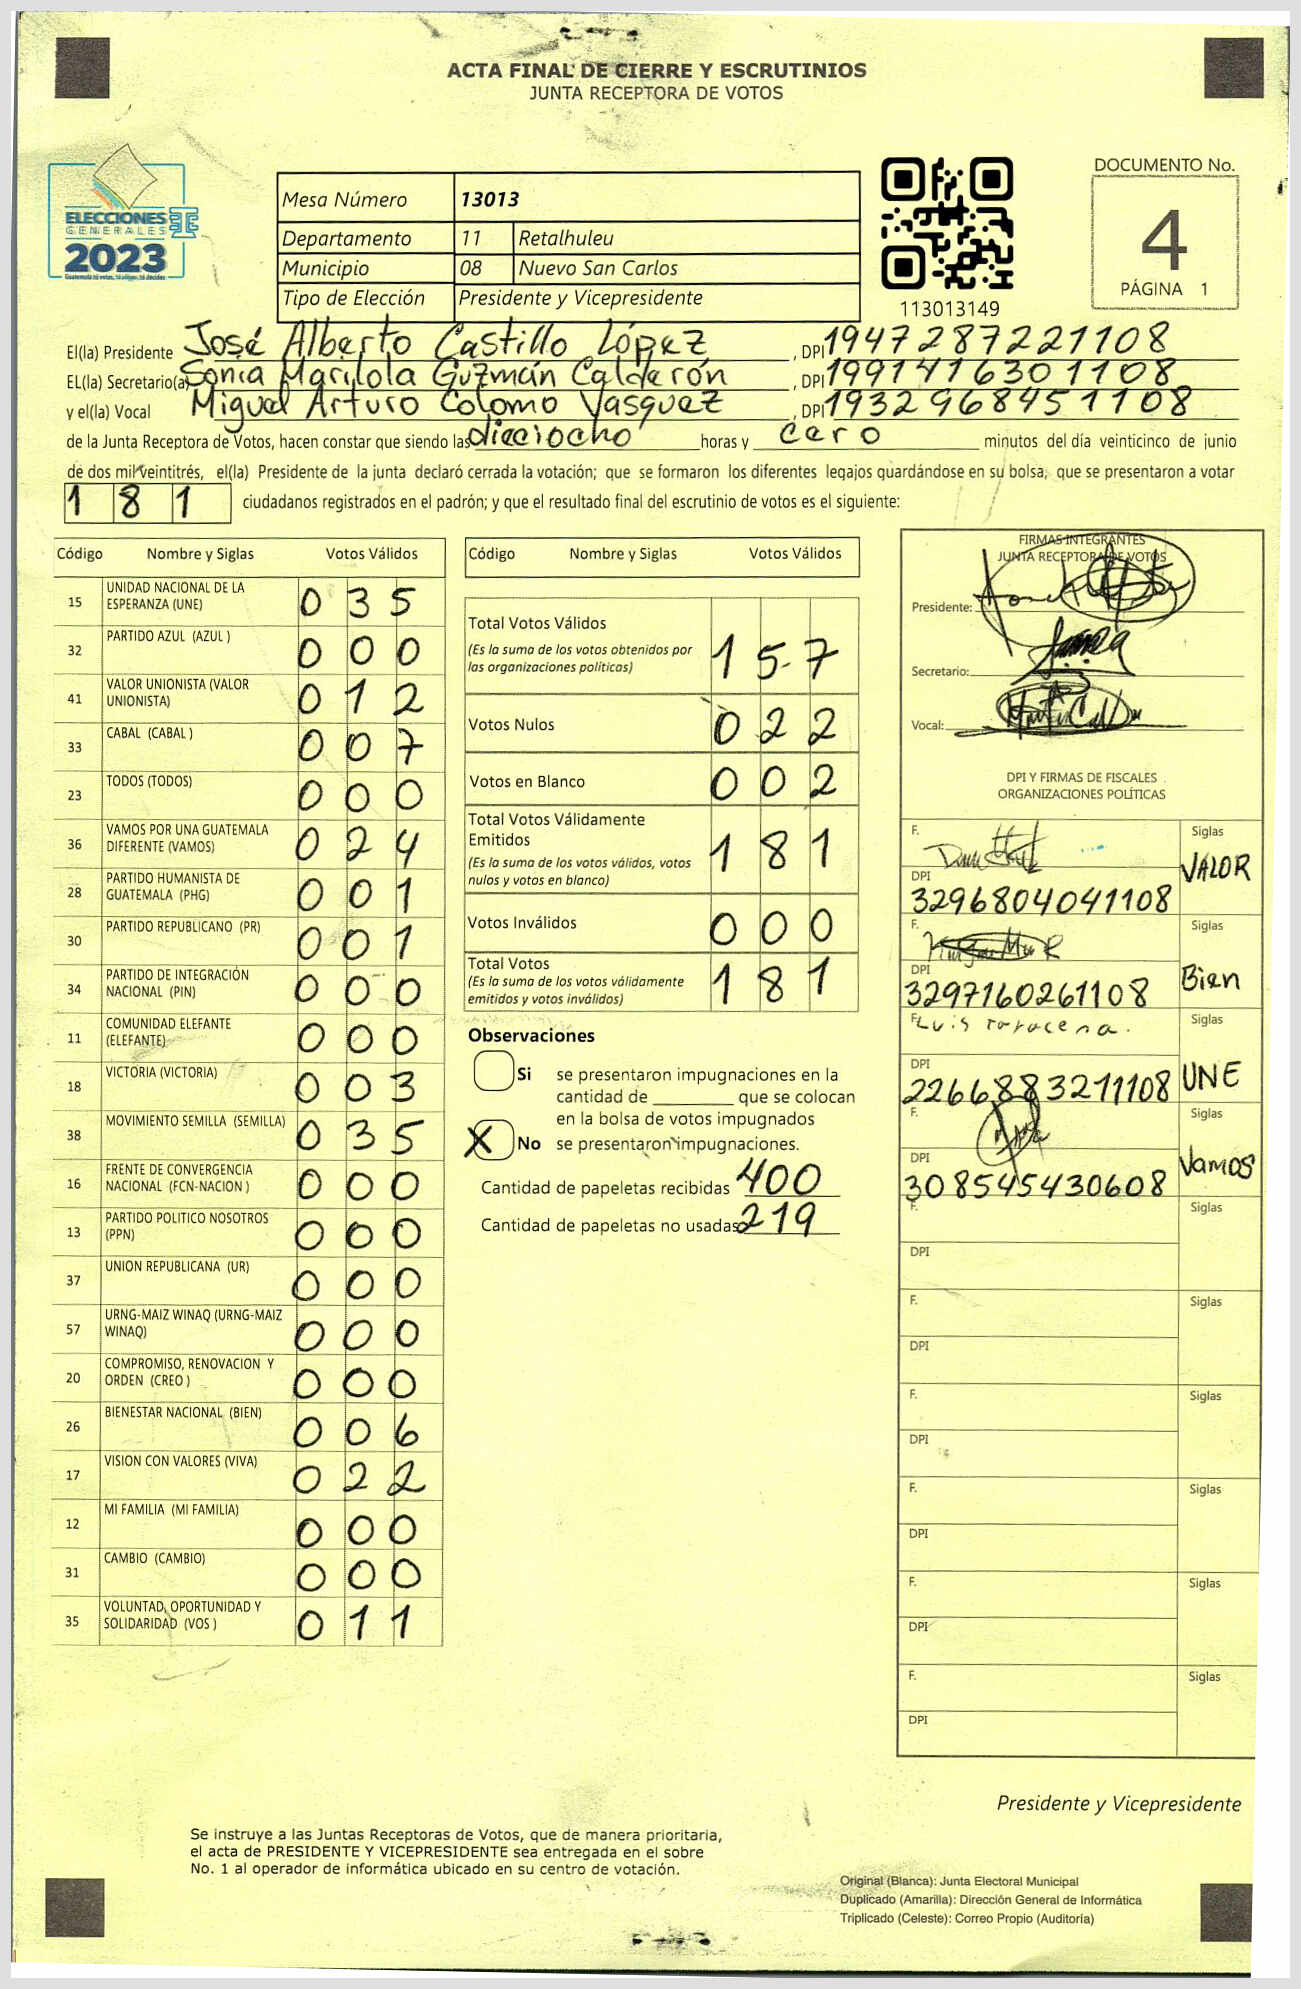 ACTA FINAL DE CIERRE Y ESCRUTINIOS
JUNTA RECEPTORA DE VOTOS
ELECCIONES
GENERALES
2023
Mesa Número 13013
Departamento 11 Retalhuleu
Municipio 08 Nuevo San Carlos
Tipo de Elección Presidente y Vicepresidente
113013149
DOCUMENTO No.
4
PÁGINA 1
El(la) Presidente José Alberto Castillo López , DPI 1947287221108
EL(la) Secretario(a) Sonia Marilola Guzmán Calderón , DPI 1991416301108
y el(la) Vocal Miguel Arturo Colomo Vasquez , DPI 1932968451108
de la Junta Receptora de Votos, hacen constar que siendo las dieciocho horas y cero minutos del día veinticinco de junio
de dos mil veintitrés, el(la) Presidente de la junta declaró cerrada la votación; que se formaron los diferentes legajos guardándose en su bolsa, que se presentaron a votar
181 ciudadanos registrados en el padrón; y que el resultado final del escrutinio de votos es el siguiente:
Código Nombre y Siglas Votos Válidos
15 UNIDAD NACIONAL DE LA ESPERANZA (UNE) 035
32 PARTIDO AZUL (AZUL ) 000
41 VALOR UNIONISTA (VALOR UNIONISTA) 012
33 CABAL (CABAL ) 007
23 TODOS (TODOS) 000
36 VAMOS POR UNA GUATEMALA DIFERENTE (VAMOS) 024
28 PARTIDO HUMANISTA DE GUATEMALA (PHG) 001
30 PARTIDO REPUBLICANO (PR) 001
34 PARTIDO DE INTEGRACIÓN NACIONAL (PIN) 000
11 COMUNIDAD ELEFANTE (ELEFANTE) 000
18 VICTORIA (VICTORIA) 003
38 MOVIMIENTO SEMILLA (SEMILLA) 035
16 FRENTE DE CONVERGENCIA NACIONAL (FCN-NACION ) 000
13 PARTIDO POLITICO NOSOTROS (PPN) 000
37 UNION REPUBLICANA (UR) 000
57 URNG-MAIZ WINAQ (URNG-MAIZ WINAQ) 000
20 COMPROMISO, RENOVACION Y ORDEN (CREO ) 000
26 BIENESTAR NACIONAL (BIEN) 006
17 VISION CON VALORES (VIVA) 022
12 MI FAMILIA (MI FAMILIA) 000
31 CAMBIO (CAMBIO) 000
35 VOLUNTAD, OPORTUNIDAD Y SOLIDARIDAD (VOS ) 011
Código Nombre y Siglas Votos Válidos
Total Votos Válidos 157
(Es la suma de los votos obtenidos por
las organizaciones políticas)
Votos Nulos 022
Votos en Blanco 002
Total Votos Válidamente
Emitidos 181
(Es la suma de los votos válidos, votos
nulos y votos en blanco)
Votos Inválidos 000
Total Votos 181
(Es la suma de los votos válidamente
emitidos y votos inválidos)
Observaciones
Si se presentaron impugnaciones en la
cantidad de ________ que se colocan
en la bolsa de votos impugnados
X No se presentaron impugnaciones.
Cantidad de papeletas recibidas 400
Cantidad de papeletas no usadas 219
FIRMAS INTEGRANTES
JUNTA RECEPTORA DE VOTOS
Presidente:
Secretario:
Vocal:
DPI Y FIRMAS DE FISCALES
ORGANIZACIONES POLÍTICAS
F. Siglas
VALOR
DPI
3296804041108
F. Siglas
Bien
DPI
3297160261108
F. Luis taracena. Siglas
UNE
DPI
2266883211108
F. Siglas
Vamos
DPI
308545430608
F. Siglas
DPI
F. Siglas
DPI
F. Siglas
DPI
F. Siglas
DPI
F. Siglas
DPI
F. Siglas
DPI
Presidente y Vicepresidente
Se instruye a las Juntas Receptoras de Votos, que de manera prioritaria,
el acta de PRESIDENTE Y VICEPRESIDENTE sea entregada en el sobre
No. 1 al operador de informática ubicado en su centro de votación.
Original (Blanca): Junta Electoral Municipal
Duplicado (Amarilla): Dirección General de Informática
Triplicado (Celeste): Correo Propio (Auditoría)